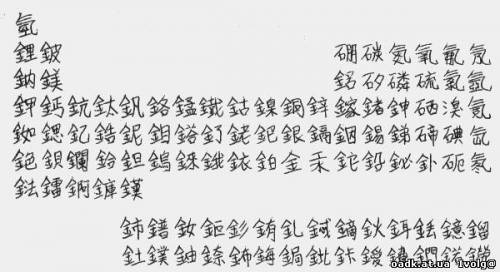 氫
鋰鈹硼碳氮氧氟氖
鈉鎂鋁矽磷硫氯氬
鉀鈣鈧鈦釩鉻錳鐵鈷鎳銅鋅鎵鍺鉮硒溴氪
銣鍶釔鋯鈮鉬鎝釕銠鈀銀鎘銦錫銻碲碘氙
銫鋇鑭鉿鉭鎢錸鋨銥鉑金汞鉈鉛鉍釙砈氡
鍅鐳錒
鈰鐠釹鉕釤銪釓鋱鏑鈥鉺銩鐿鎦
釷鏷鈾錼鈽鋂鋦鉳鉲鑀鐨鍆鍩鐒
oadk.at.ua lvolg@